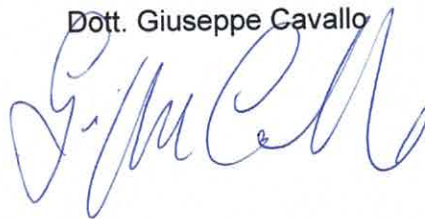 Dott. Giuseppe Cavallo